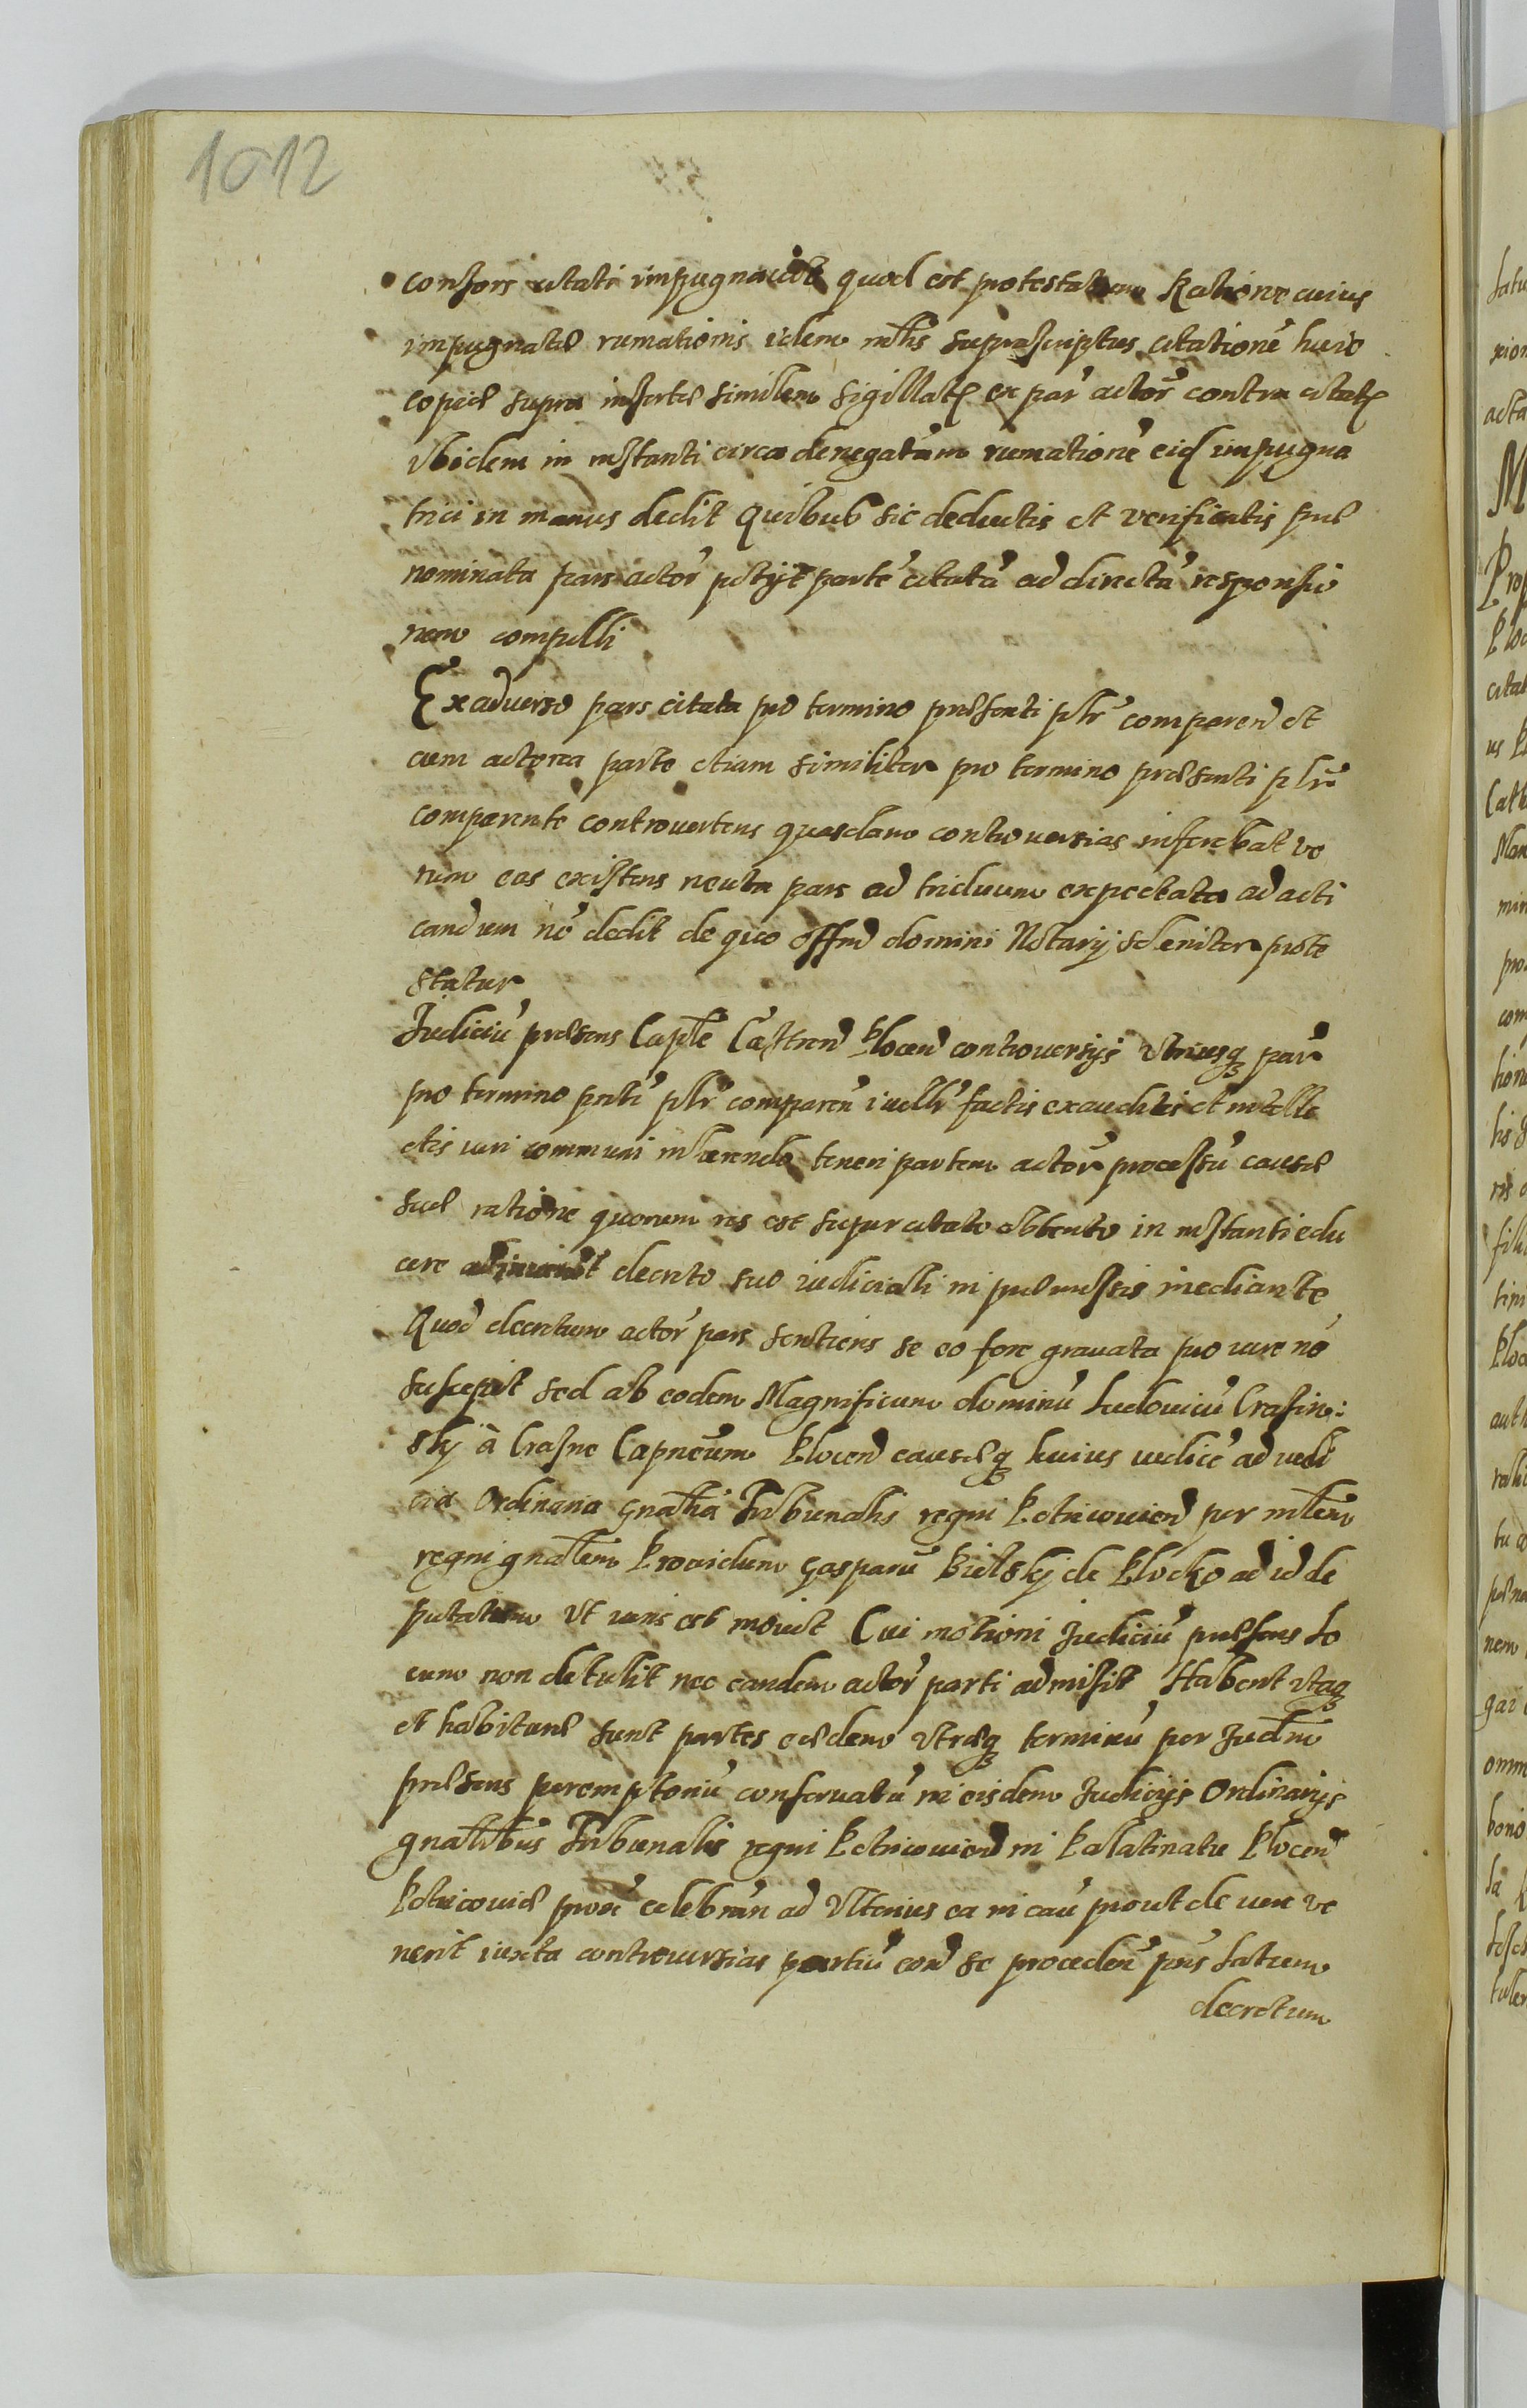 1012
consors citati impugnavit quod est protestatum Ratione cuius
impugnatæ rumationis idem mlis suprascriptus citationẽ huic
copiæ supra insertæ similem sigillatã ex par actor contra citatã
ibidem in instanti circa denegatam rumationẽ eid impugna
trici in manus dedit Quibus sic deductis et verificatis præ
nominata pars actor petijt partẽ citatã ad directã responsio
nem compelli
Ex adverso pars citata pro termino præsenti plr comparen et
cum actorea parte etiam similiter pro termino præsenti plr
comparente controvertens quasdam controversias inferebat ve
rum eas existens neutra pars ad triduum expectata ad acti
candum nõ dedit de quo offm domini Notarij soleniter prote
statur
Judiciũ præsens Caple Castren Plocen controversijs utriusq par
pro termino pnti plr comparen iudlr factis exauditis et intelle
ctis iuri communi inhærendo teneri partem actor processũ causæ
suæ ratione quorum res est super citato obtento in instanti edu
cere adinvenit decreto suo iudiciali in præmissis mediante
Quod decretum actor pars sentiens se eo fore gravata pro iure nõ
suscepit sed ab eodem Magnificum dominũ Ludovicũ Crasin:
skj à Crasne Capneum Plocen causæq huius iudicẽ ad iudi
cia Ordinaria gnalia Tribunalis regni Petricovien per mlem
regni gnalem Providum Gasparũ Bielskj de Plocko ad id de
putatum ut iuris est movit Cui motioni Judiciũ præsens lo
cum non detulit nec eandem actor parti admisit Habent itaq
et habituræ sunt partes eædem utræq terminũ per Judm
præsens peremptoriũ conservatũ in eisdem Judicijs Ordinarijs
gnalibus Tribunalis regni Petricovien in Palatinatu Plocen
Petricoviæ proxĩ celebran ad ulterius ea in cau prout de iure ve
nerit iuxta controversias partiũ coram se proceden pns latum
decretum